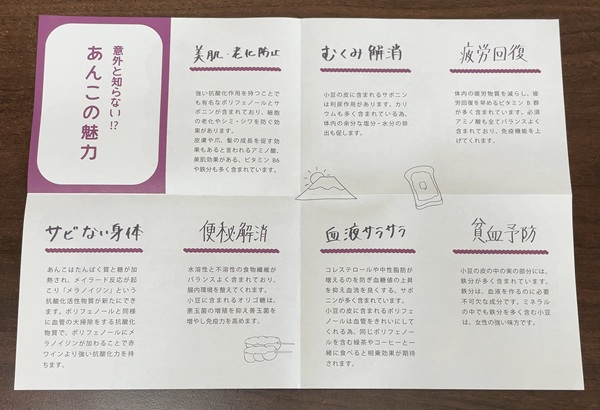 意外と知らない!?
あんこの魅力
美肌・老化防止
強い抗酸化作用を持つことで
も有名なポリフェノールとサ
ポニンが含まれており、細胞
の老化やシミ・シワを防ぐ効
果があります。
皮膚や爪、髪の成長を促す効
果もあると言われるアミノ酸、
美肌効果がある、ビタミンB6
や鉄分も多く含まれています。
むくみ解消
小豆の皮に含まれるサポニン
は利尿作用があります。カリ
ウムも多く含まれている為、
体内の余分な塩分・水分の排
出も促します。
疲労回復
体内の疲労物質を減らし、疲
労回復を早めるビタミンB群
が多く含まれています。必須
アミノ酸も全てバランスよく
含まれており、免疫機能を上
げてくれます。
サビない身体
あんこはたんぱく質と糖が加
熱され、メイラード反応が起
こり「メラノイジン」という
抗酸化活性物質が新たにでき
ます。ポリフェノールと同様
に血管の大掃除をする抗酸化
物質で、ポリフェノールにメ
ラノイジンが加わることで赤
ワインより強い抗酸化力を持
ちます。
便秘解消
水溶性と不溶性の食物繊維が
バランスよく含まれており、
腸内環境を整えてくれます。
小豆に含まれるオリゴ糖は、
悪玉菌の増殖を抑え善玉菌を
増やし免疫力を高めます。
血液サラサラ
コレステロールや中性脂肪が
増えるのを防ぎ血糖値の上昇
を抑え血流を良くする、サポ
ニンが多く含まれています。
小豆の皮に含まれるポリフェ
ノールは血管をきれいにして
くれる為、同じポリフェノー
ルを含む緑茶やコーヒーと一
緒に食べると相乗効果が期待
されます。
貧血予防
小豆の皮の中の実の部分には、
鉄分が多く含まれています。
鉄分は、血液を作るのに必要
不可欠な成分です。ミネラル
の中でも鉄分を多く含む小豆
は、女性の強い味方です。